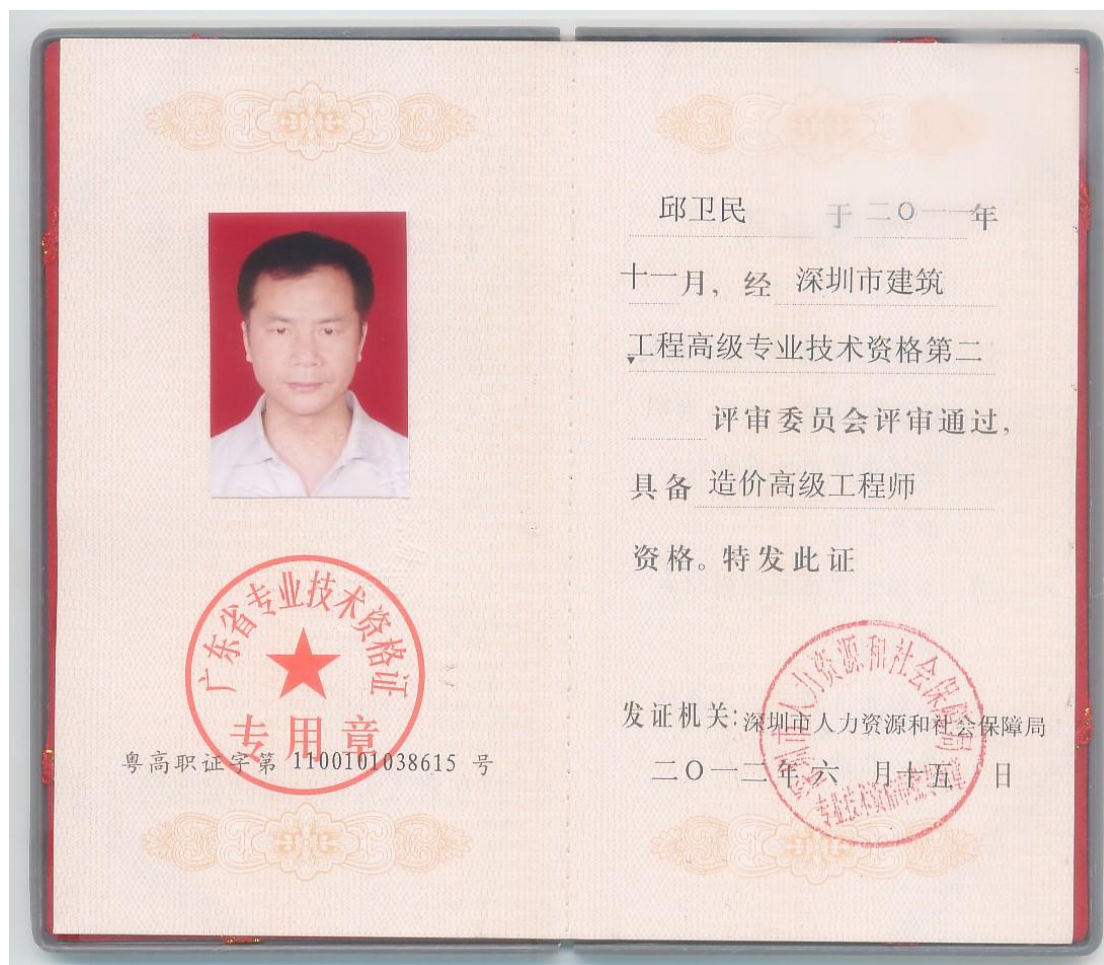 广东省专业技术资格证
专用章
粤高职证字第 1100101038615 号
邱卫民 于二〇一一年
十一月，经 深圳市建筑
工程高级专业技术资格第二
评审委员会评审通过，
具备 造价高级工程师
资格。特发此证
深圳市人力资源和社会保障局
发证机关：深圳市人力资源和社会保障局
二〇一二年六 月十五 日